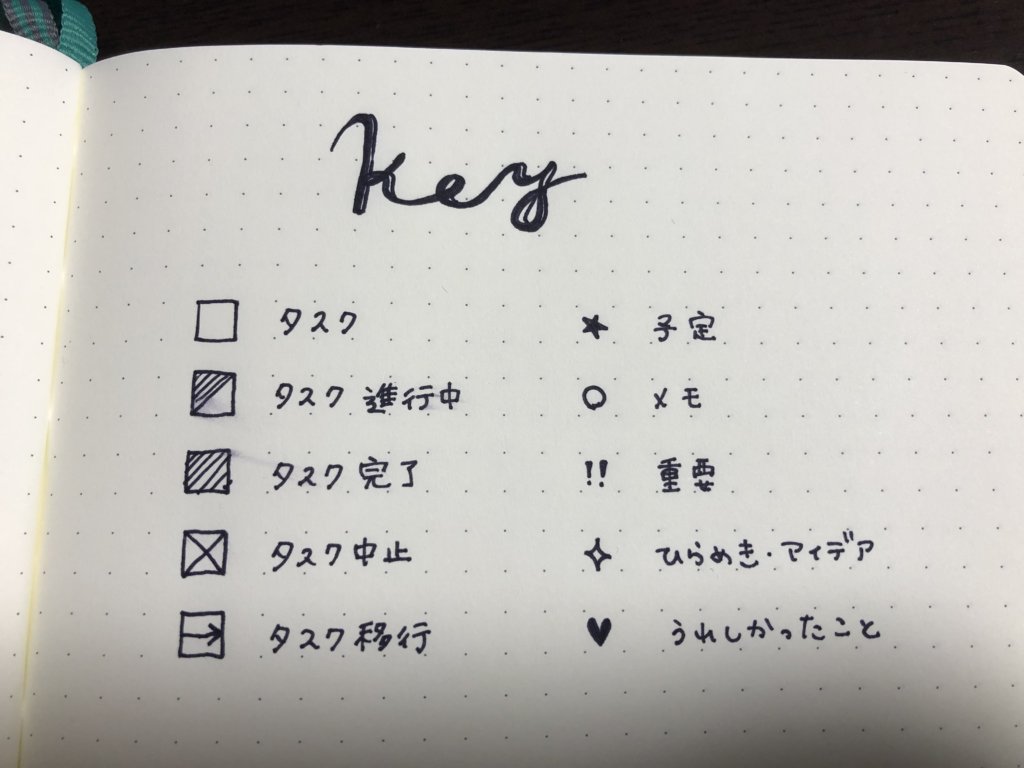 Key
タスク
タスク 進行中
タスク 完了
タスク中止
タスク移行
予定
メモ
!! 重要
ひらめき・アイデア
うれしかったこと